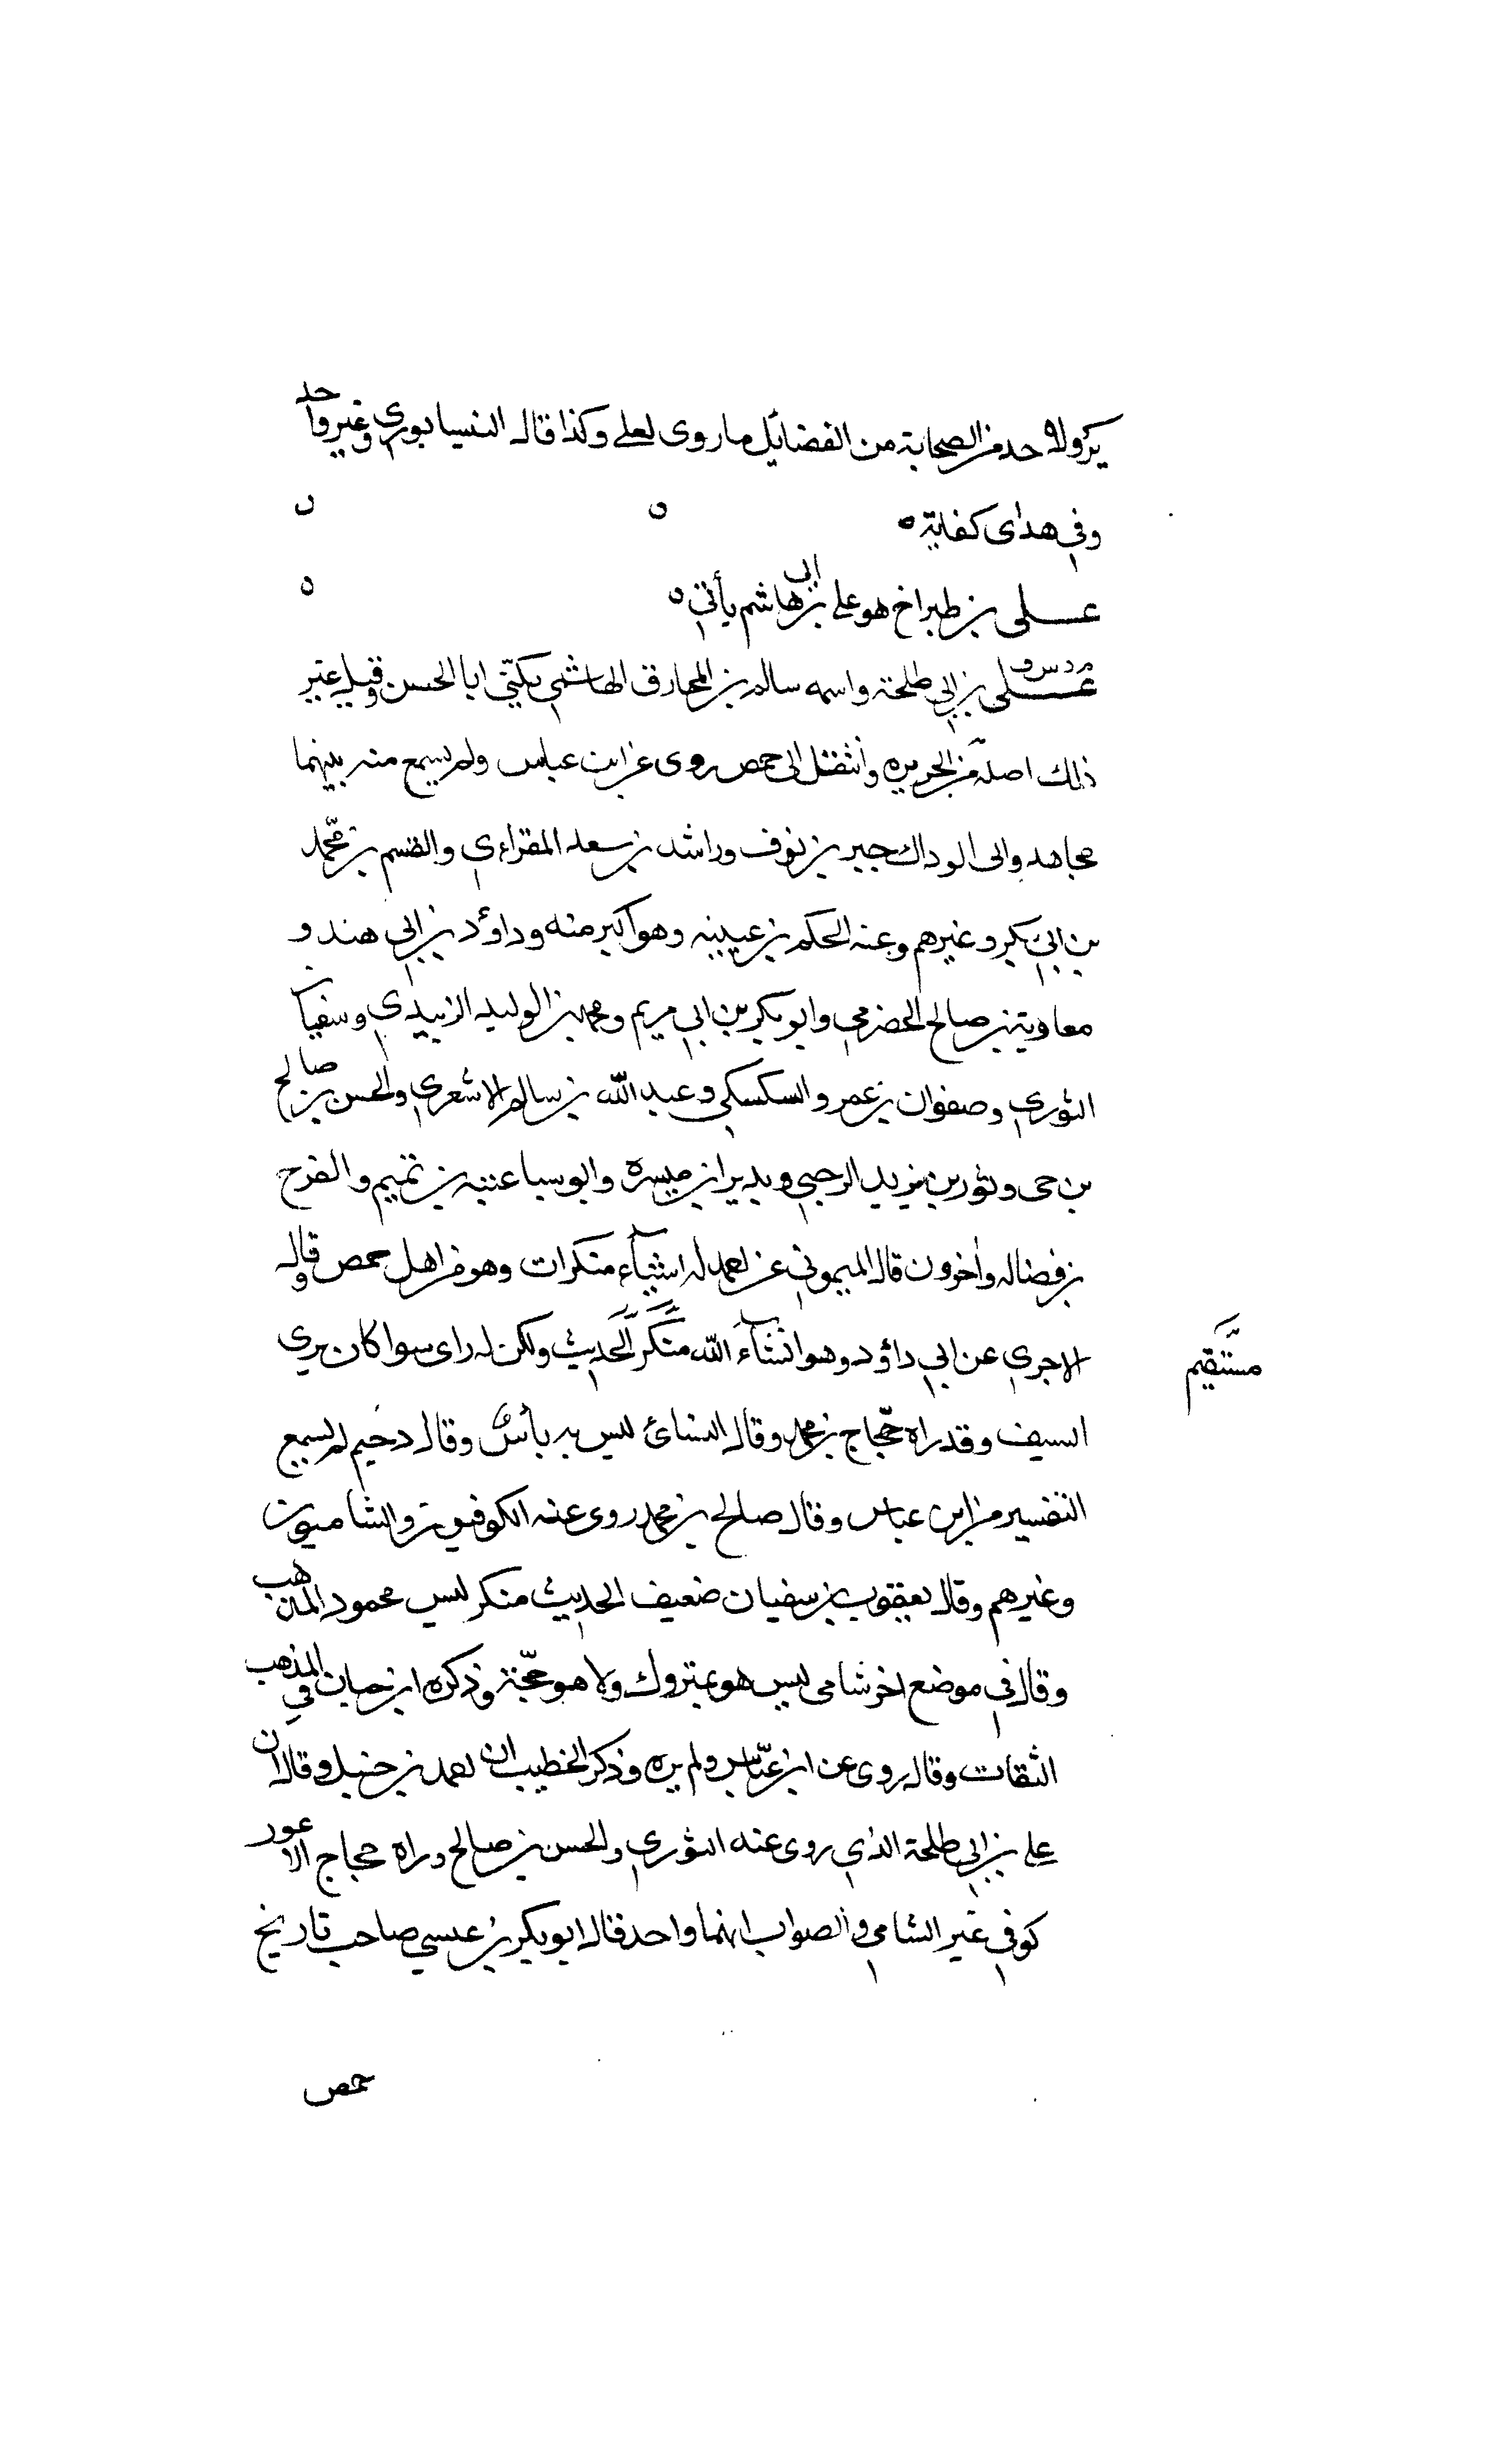 يرو لاحد من الصحابة من الفضايل ما روى لعلي وكذا قال النسيابوري وغير واحد
وفي هداى كفاية ه
علي بن طبراخ هو علي بن ابي هاشم يأتي ه
م د س ق
علي بن ابي طلحة واسمه سالم بن المخارق الهاشمي يكنّي ابا الحسن وقيل غير
ذلك اصله من الجزيره وانتقل الى حمص روى عن ابن عباس ولم يسمع منه بينهما
مجاهد والى الوداك جبير بن نوف وراشد بن سعد المقراءي والقسم بن محمّد
بن ابي بكر وغيرهم وعنه الحكم بن عيينه وهو اكبر منه وداؤد بن ابي هند و
معاوية بن صالح الحضرمي وابو بكر بن ابي مريم ومحمد بن الوليد الزبيدي وسفيان
الثوري وصفوان بن عمرو السكسكي وعبد الله بن سالم الاشعري والحسن بن صالح
بن حى وثور بن يزيد الرحبي وبديرا بن ميسره وابو سبا عتبه بن تميم والفرح
بن فضاله واخرون قال الميموني عن احمد له اشيآء منكرات وهو من اهل حمص وقال
الاجري عن ابي داؤد وهو انشآء الله منكر الحديث ولكن له راى سوا كان يري
مستقيم
السيف وقد راه حجّاج بن محمد وقال النسائ ليس به بأس وقال دحيم لم يسمع
التفسير من ابن عباس وقال صالح بن محمد روى عنه الكوفيون والشاميون
وغيرهم وقال يعقوب بن سفيان ضعيف الحديث منكر ليس محمود المذهب
وقال في موضع اخر شامي ليس هو بمتروك ولا هو حجّة وذكره ابن حبان في المذهب
الثقات وقال روى عن ابن عبّاس ولم يره وذكر الخطيب ان احمد بن حنبل وقال ان
علي بن ابي طلحة الذي روى عنه الثوري والحسن بن صالح وراه حجاج الاعور
كوفي غير الشامي والصواب انهما واحد قال ابو بكر بن عيسي صاحب تاريخ
حمص